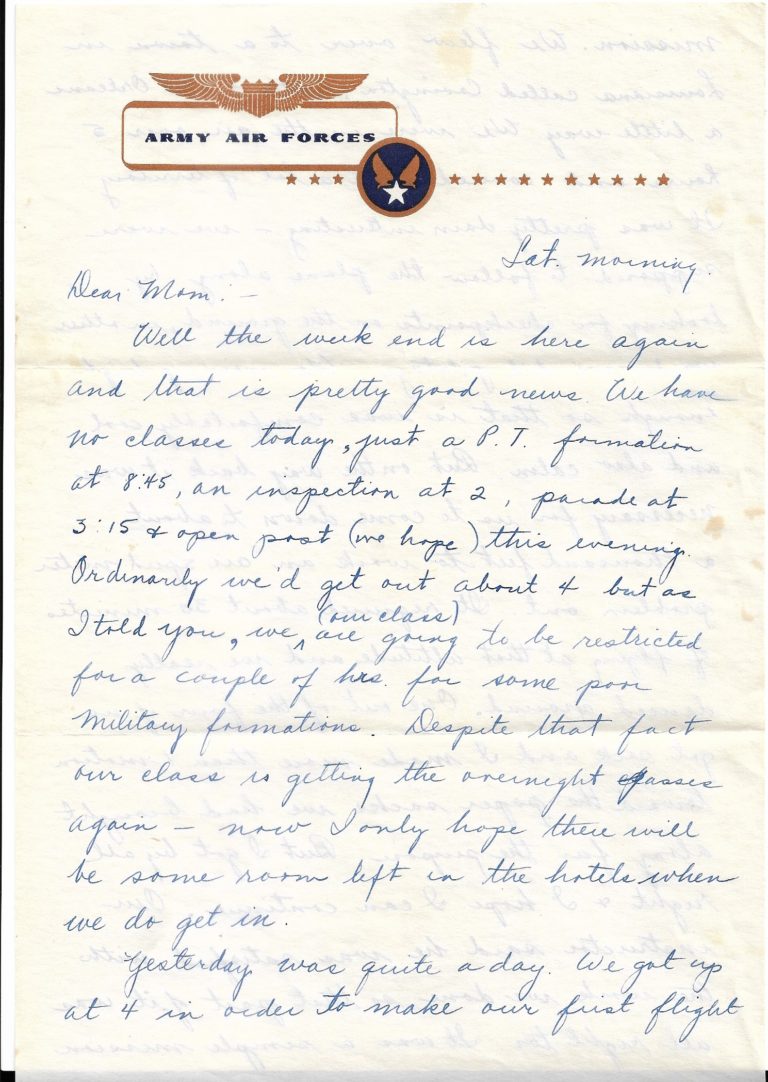 ARMY AIR FORCES
Sat. morning.
Dear Mom: -
Well the week end is here again
and that is pretty good news. We have
no classes today, just a P. T. formation
at 8:45, an inspection at 2, parade at
3:15 & open post (we hope) this evening.
Ordinarily we'd get out about 4 but as
I told you, we (our class) are going to be restricted
for a couple of hrs. for some poor
military formations. Despite that fact
our class is getting the overnight passes
again - now I only hope there will
be some room left in the hotels when
we do get in.
Yesterday was quite a day. We got up
at 4 in order to make our first flight